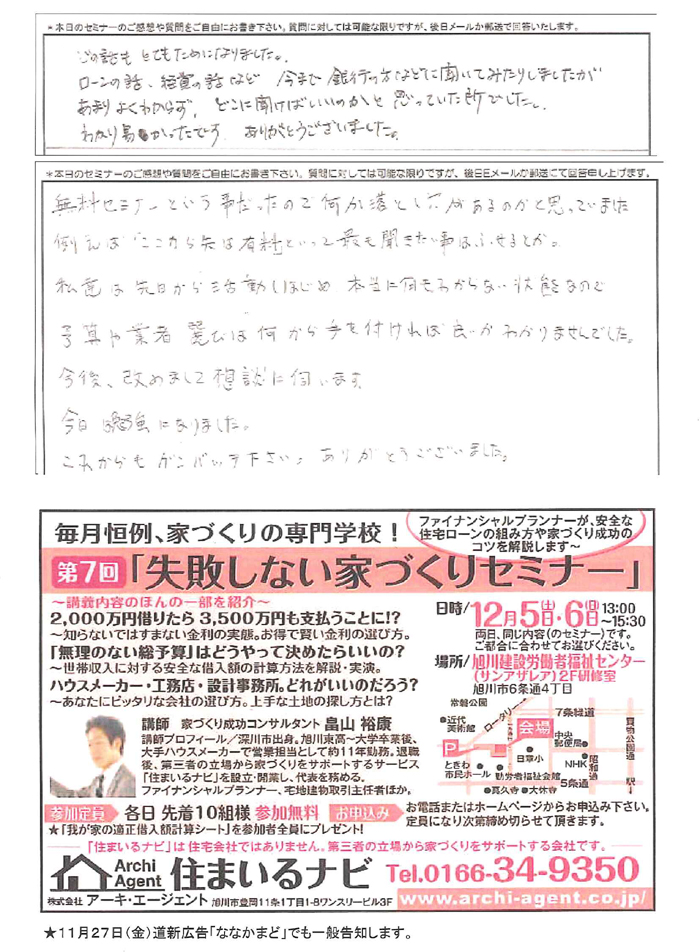 *本日のセミナーのご感想や質問をご自由にお書き下さい。質問に対しては可能な限りですが、後日メールか郵送で回答いたします。
どの話も とてもためになりました。
ローンの話、経営の話など 今まで 銀行の方などに聞いてみたりしましたが
あまりよくわからず、どこに聞けばいいのかと思っていた所でした。
わかり易かったです ありがとうございました。
*本日のセミナーのご感想や質問をご自由にお書き下さい。質問に対しては可能な限りですが、後日Eメールか郵送にて回答申し上げます。
無料セミナーという事だったので何か落とし穴があるのかと思っていました
例えば「ここから先は有料」といって最も聞きたい事は、ふせるとか。
私達は先日から活動しはじめ 本当に何もわからない状態なので
予算や業者選びは何から手を付ければ良いかわかりませんでした。
今後、改めまして相談に伺います
今日は勉強になりました。
これからもガンバッテ下さい。ありがとうございました。
毎月恒例、家づくりの専門学校!
ファイナンシャルプランナーが、安全な
住宅ローンの組み方や家づくり成功の
コツを解説します~
第7回「失敗しない家づくりセミナー」
~講義内容のほんの一部を紹介~
2,000万円借りたら3,500万円も支払うことに!?
~知らないではすまない金利の実態。お得で賢い金利の選び方。
「無理のない総予算」はどうやって決めたらいいの?
~世帯収入に対する安全な借入額の計算方法を解説・実演。
ハウスメーカー・工務店・設計事務所。どれがいいのだろう?
~あなたにピッタリな会社の選び方。上手な土地の探し方とは?
日時/12月5(土)・6(日)13:00~15:30
両日、同じ内容(のセミナー)です。
ご都合に合わせてお選びください。
場所/旭川建設労働者福祉センター
(サンアザレア)2F研修室
旭川市6条通4丁目
常磐公園
ロータリー
7条緑道
近代美術館
会場
中央郵便局
P
日章小
ときわ市民ホール
勤労者福祉会館
NHK
昭和通
買物公園通
5条通
真久寺
大休寺
駅→
講師 家づくり成功コンサルタント 畠山 裕康
講師プロフィール/深川市出身。旭川東高~大学卒業後、
大手ハウスメーカーで営業担当として約11年勤務。退職
後、第三者の立場から家づくりをサポートするサービス
「住まいるナビ」を設立・開業し、代表を務める。
ファイナンシャルプランナー、宅地建物取引主任者ほか。
参加定員 各日 先着10組様 参加無料
★「我が家の適正借入額計算シート」を参加者全員にプレゼント!
お申込み お電話またはホームページからお申込み下さい。
定員になり次第締め切らせて頂きます。
「住まいるナビ」は住宅会社ではありません。第三者の立場から家づくりをサポートする会社です。
Archi Agent 住まいるナビ
Tel.0166-34-9350
株式会社 アーキ・エージェント 旭川市豊岡11条1丁目1-8ワンスリービル3F
www.archi-agent.co.jp/
★11月27日(金)道新広告「ななかまど」でも一般告知します。